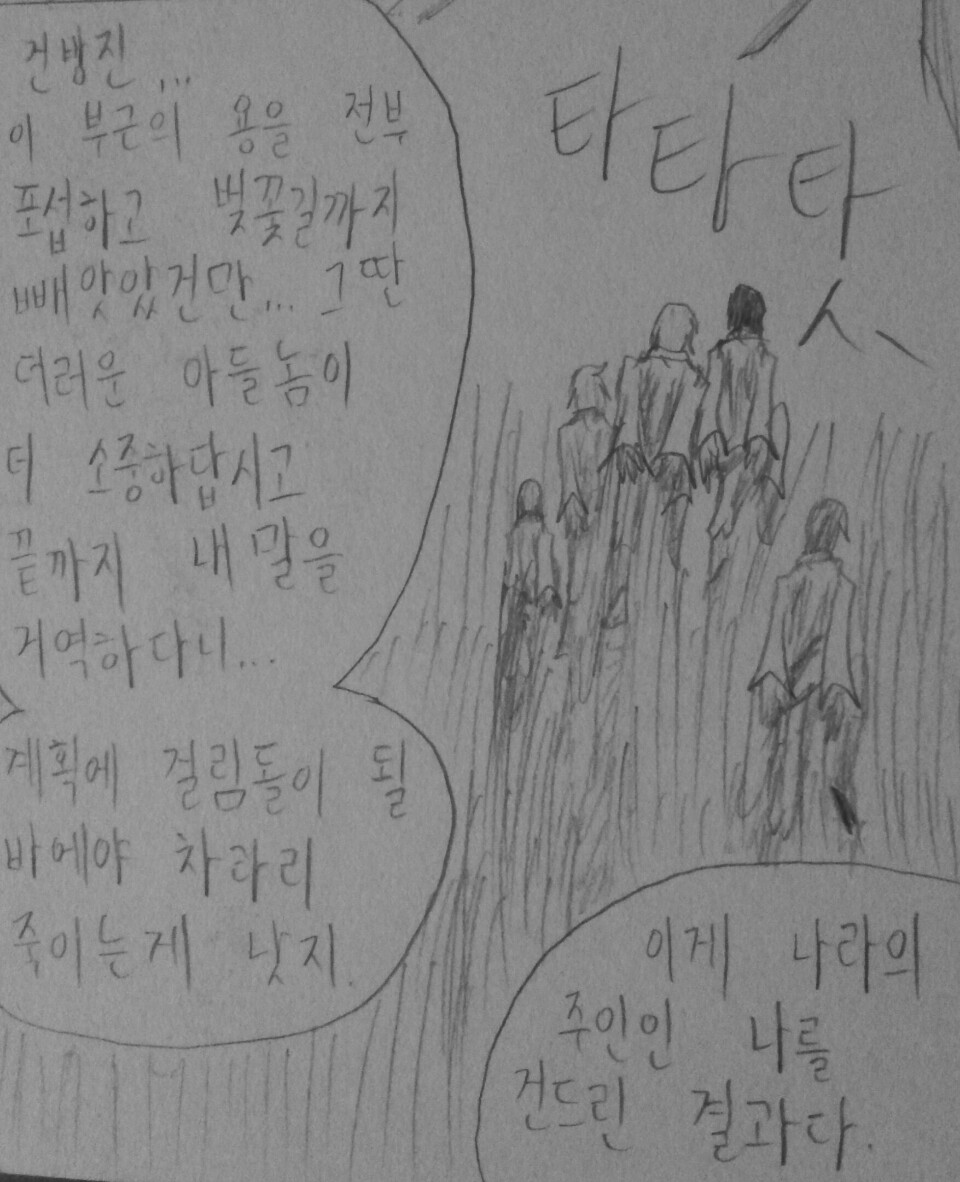 건방진...
이 부근의 용을 전부
포섭하고 벚꽃길까지
빼앗았건만... 그딴
더러운 아들놈이
더 소중하답시고
끝까지 내 말을
거역하다니...
계획에 걸림돌이 될
바에야 차라리
죽이는게 낫지.
타탓
탓
이게 나라의
주인인 나를
건드린 결과다.